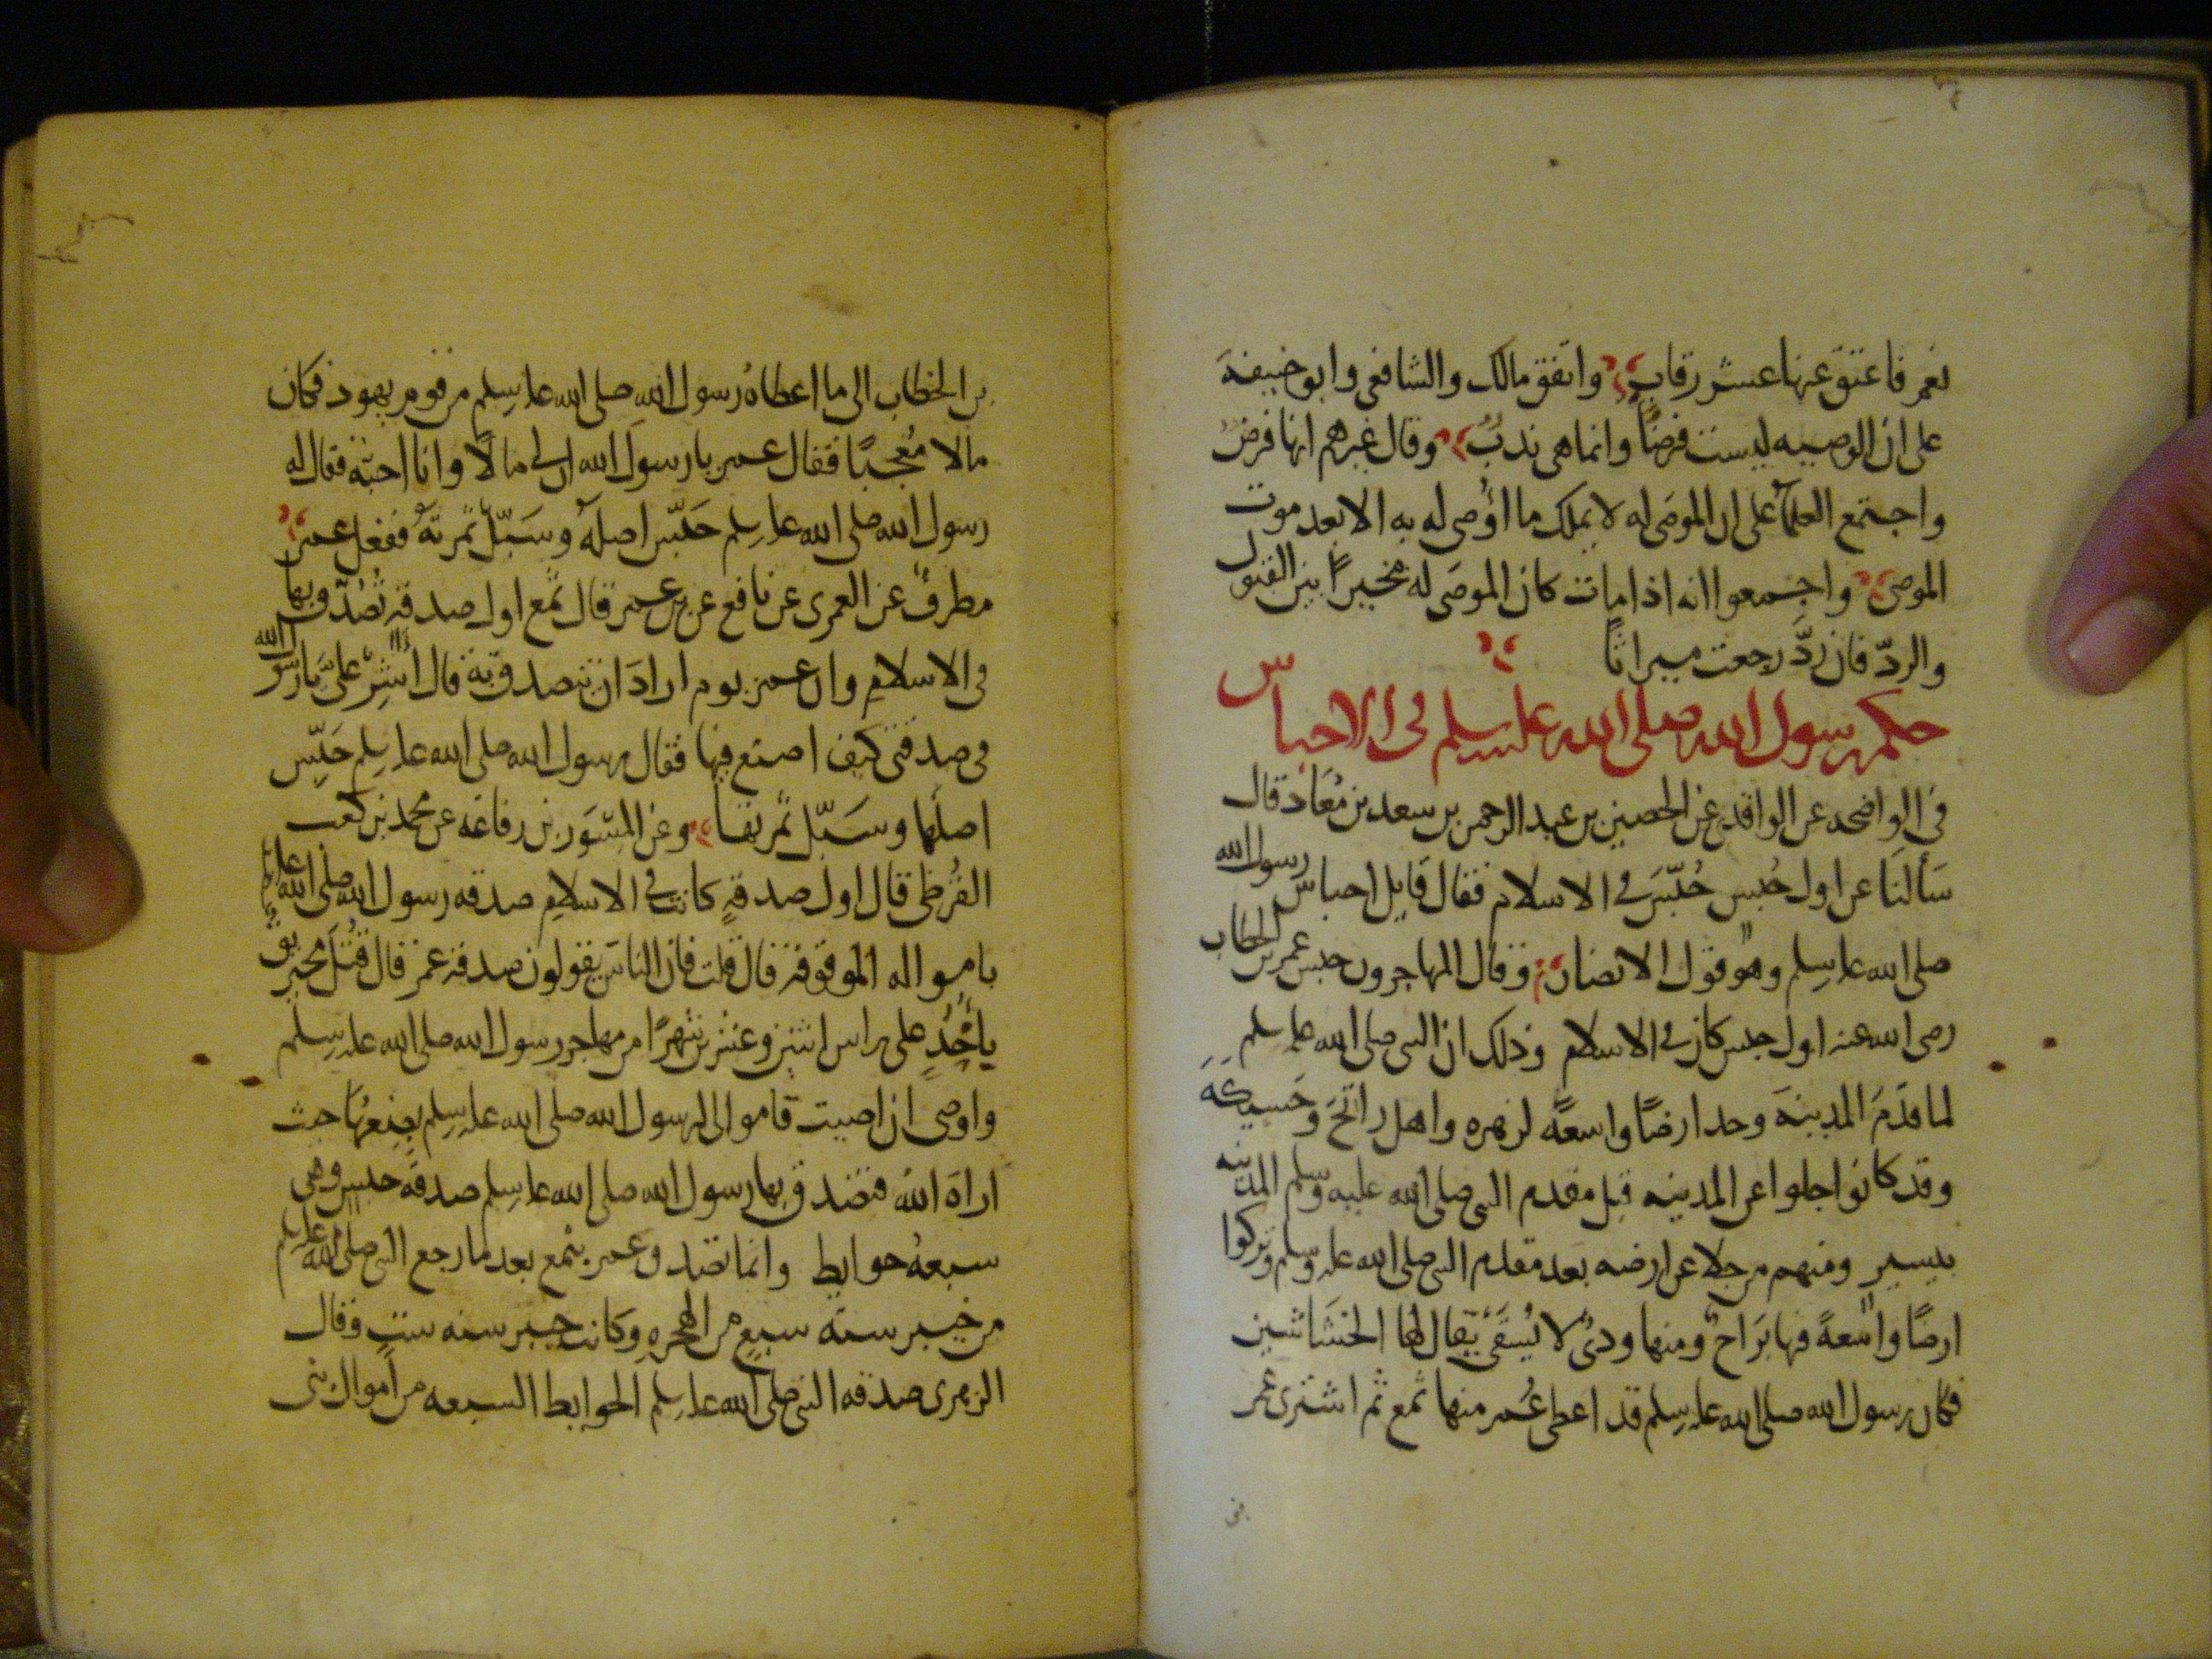 نعم فاعتق عنها عشر رقاب واتفق مالك والشافعي وابو حنيفة
على ان الوصيه ليست فرضًا وانما هي ندبٌ وقال غيرهم انها فرض
واجتمع العلماء على ان الموصَى له لا يملك ما اُوصى له به الا بعد موت
الموصى واجتمعوا انه اذا مات كان الموصَى له مخيرًا بين القبول
والردّ فان رَدَّ رجعت ميراثًا
حكم رسول الله صلى الله عليه وسلم فى الاحباس
في الواضحه عن الواقدي عن الحصين بن عبد الرحمن بن سعد بن مُعَاذ قال
سَألنَا عن اول حُبس حُبّسَ في الاسلام فقال قايل احباس رسول الله
صلى الله عليه وسلم وهو قول الانصار وقال المهاجرون حبس عمر بن الخطاب
رضى الله عنه اول حبس كان في الاسلام وذلك ان النبي صلى الله عليه وسلم
لما قدَمَ المدينة وجد ارضًا واسعةً لزهره واهل راتحَ وحَسيكَةَ
وقد كانوا اجلوا عن المدينه قبل مقدم النبي صلى الله عليه وسلم المدينه
بيسير ومنهم من جلا عن ارضه بعد مقدم النبي صلى الله عليه وسلم وتركوا
ارضًا واسعةً فيها بَرَاحٌ ومنها ودىٌ لا يُسقَى يقال لها الحشاشين
فكان رسول الله صلى الله عليه وسلم قد اعطى عُمر منها ثمغ ثم اشترى عمر
بن
بن الخطاب الى ما اعطاهُ رسول الله صلى الله عليه وسلم من قوم يهود فكان
مالا مُعجبًا فقال عمر يا رسول الله ان لي مالاً وانا احبّه فقال له
رسول الله صلى الله عليه وسلم حَبّس اصلَهُ وسَبّل ثمرتَهُ ففعل عمر
مطرفٌ عن العمرى عن نافع عن بن عمر قال ثمغ اول صدقةٍ تُصُدّق بها
فى الاسلام وان عمر يوم ارادَ ان يتصدق به قال اَشِرْ علىَّ يا رسول الله
فى صدقتى كيف اصنع فيها فقال رسول الله صلى الله عليه وسلم حَبّس
اصلها وسَبّل ثمرتها وعن المِسْوَر بن رفاعَه عن محمد بن كعب
القُرظى قال اول صدقةٍ كانت في الاسلام صدقه رسول الله صلى الله عليه وسلم
بامواله الموقوفة قال قلت فان الناس يقولون صدقة عمر قال قُتل مخيريق
باُحُدٍ على راس اثنين وعشرين شهرًا من مهاجر رسول الله صلى الله عليه وسلم
واوصى ان اصيت فاموالى لرسول الله صلى الله عليه وسلم يضعُهَا حيث
اراهُ الله فتصدق بها رسول الله صلى الله عليه وسلم صدقةُ حبس وهي
سبعةُ حوايط وانما تصدق عمر بثمغ بعد ما رجع النبي صلى الله عليه وسلم
من خيبر سنة سبع من الهجرهِ وكانت خيبر سنه ستٍ وقال
الزهرى صدقه النبي صلى الله عليه وسلم الحوايط السبعه من اموال بنى